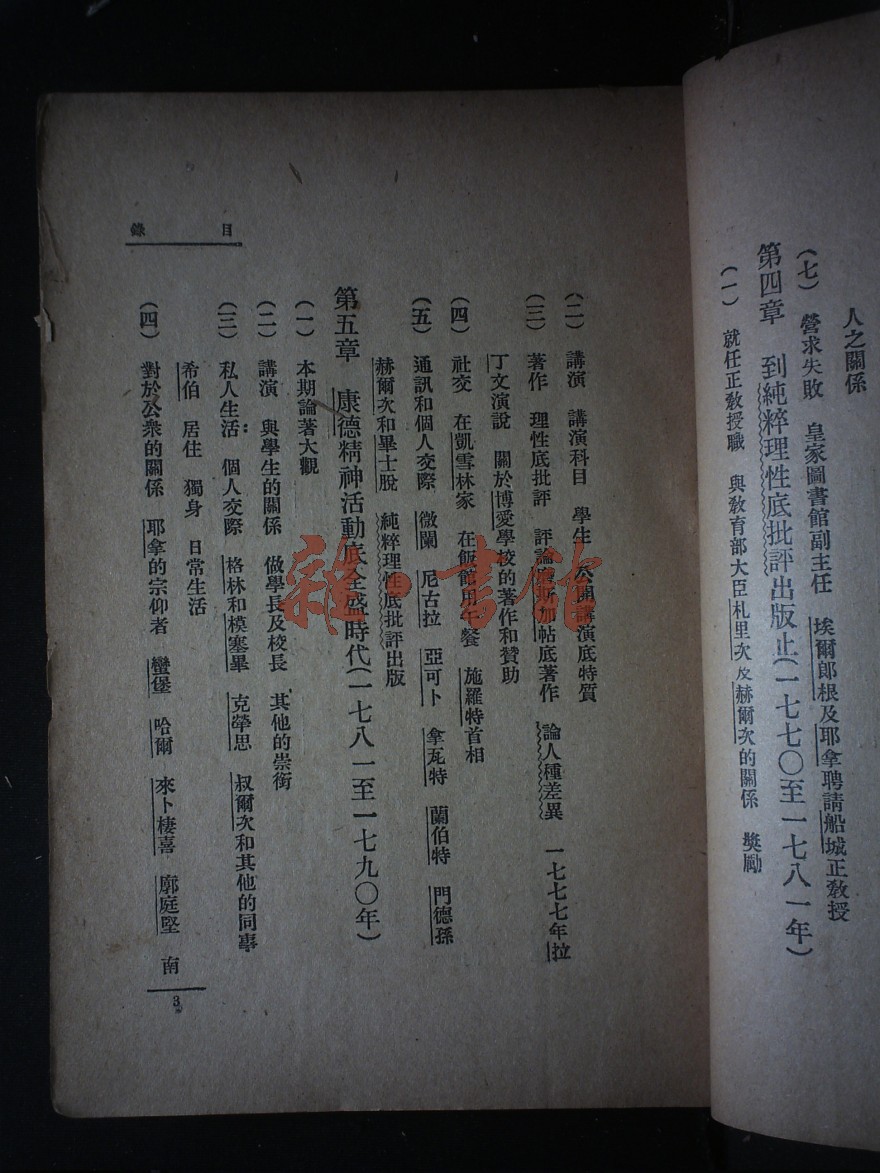 人之關係
(七) 營求失敗 皇家圖書館副主任 埃爾郎根及耶拿聘請船城正教授
第四章 到純粹理性底批評出版止(一七七〇至一七八一年)
(一) 就任正教授職 與教育部大臣札里次及赫爾次的關係 奬勵
目錄
(二) 講演 講演科目 學生 公開講演底特質
(三) 著作 理性底批評 評論摩斯加帖底著作 論人種差異 一七七七年拉
丁文演說 關於博愛學校的著作和贊助
(四) 社交 在凱雪林家 在飯館用午餐 施羅特首相
(五) 通訊和個人交際 微闌 尼古拉 亞可卜 拿瓦特 蘭伯特 門德孫
赫爾次和畢士脫 純粹理性底批評出版
第五章 康德精神活動底全盛時代(一七八一至一七九〇年)
(一) 本期論著大觀
(二) 講演 與學生的關係 做學長及校長 其他的崇銜
(三) 私人生活: 個人交際 格林和模塞畢 克犖思 叔爾次和其他的同事
希伯 居住 獨身 日常生活
(四) 對於公衆的關係 耶拿的宗仰者 蠻堡 哈爾 來卜棲喜 廓庭堅 南
3
雜·書館